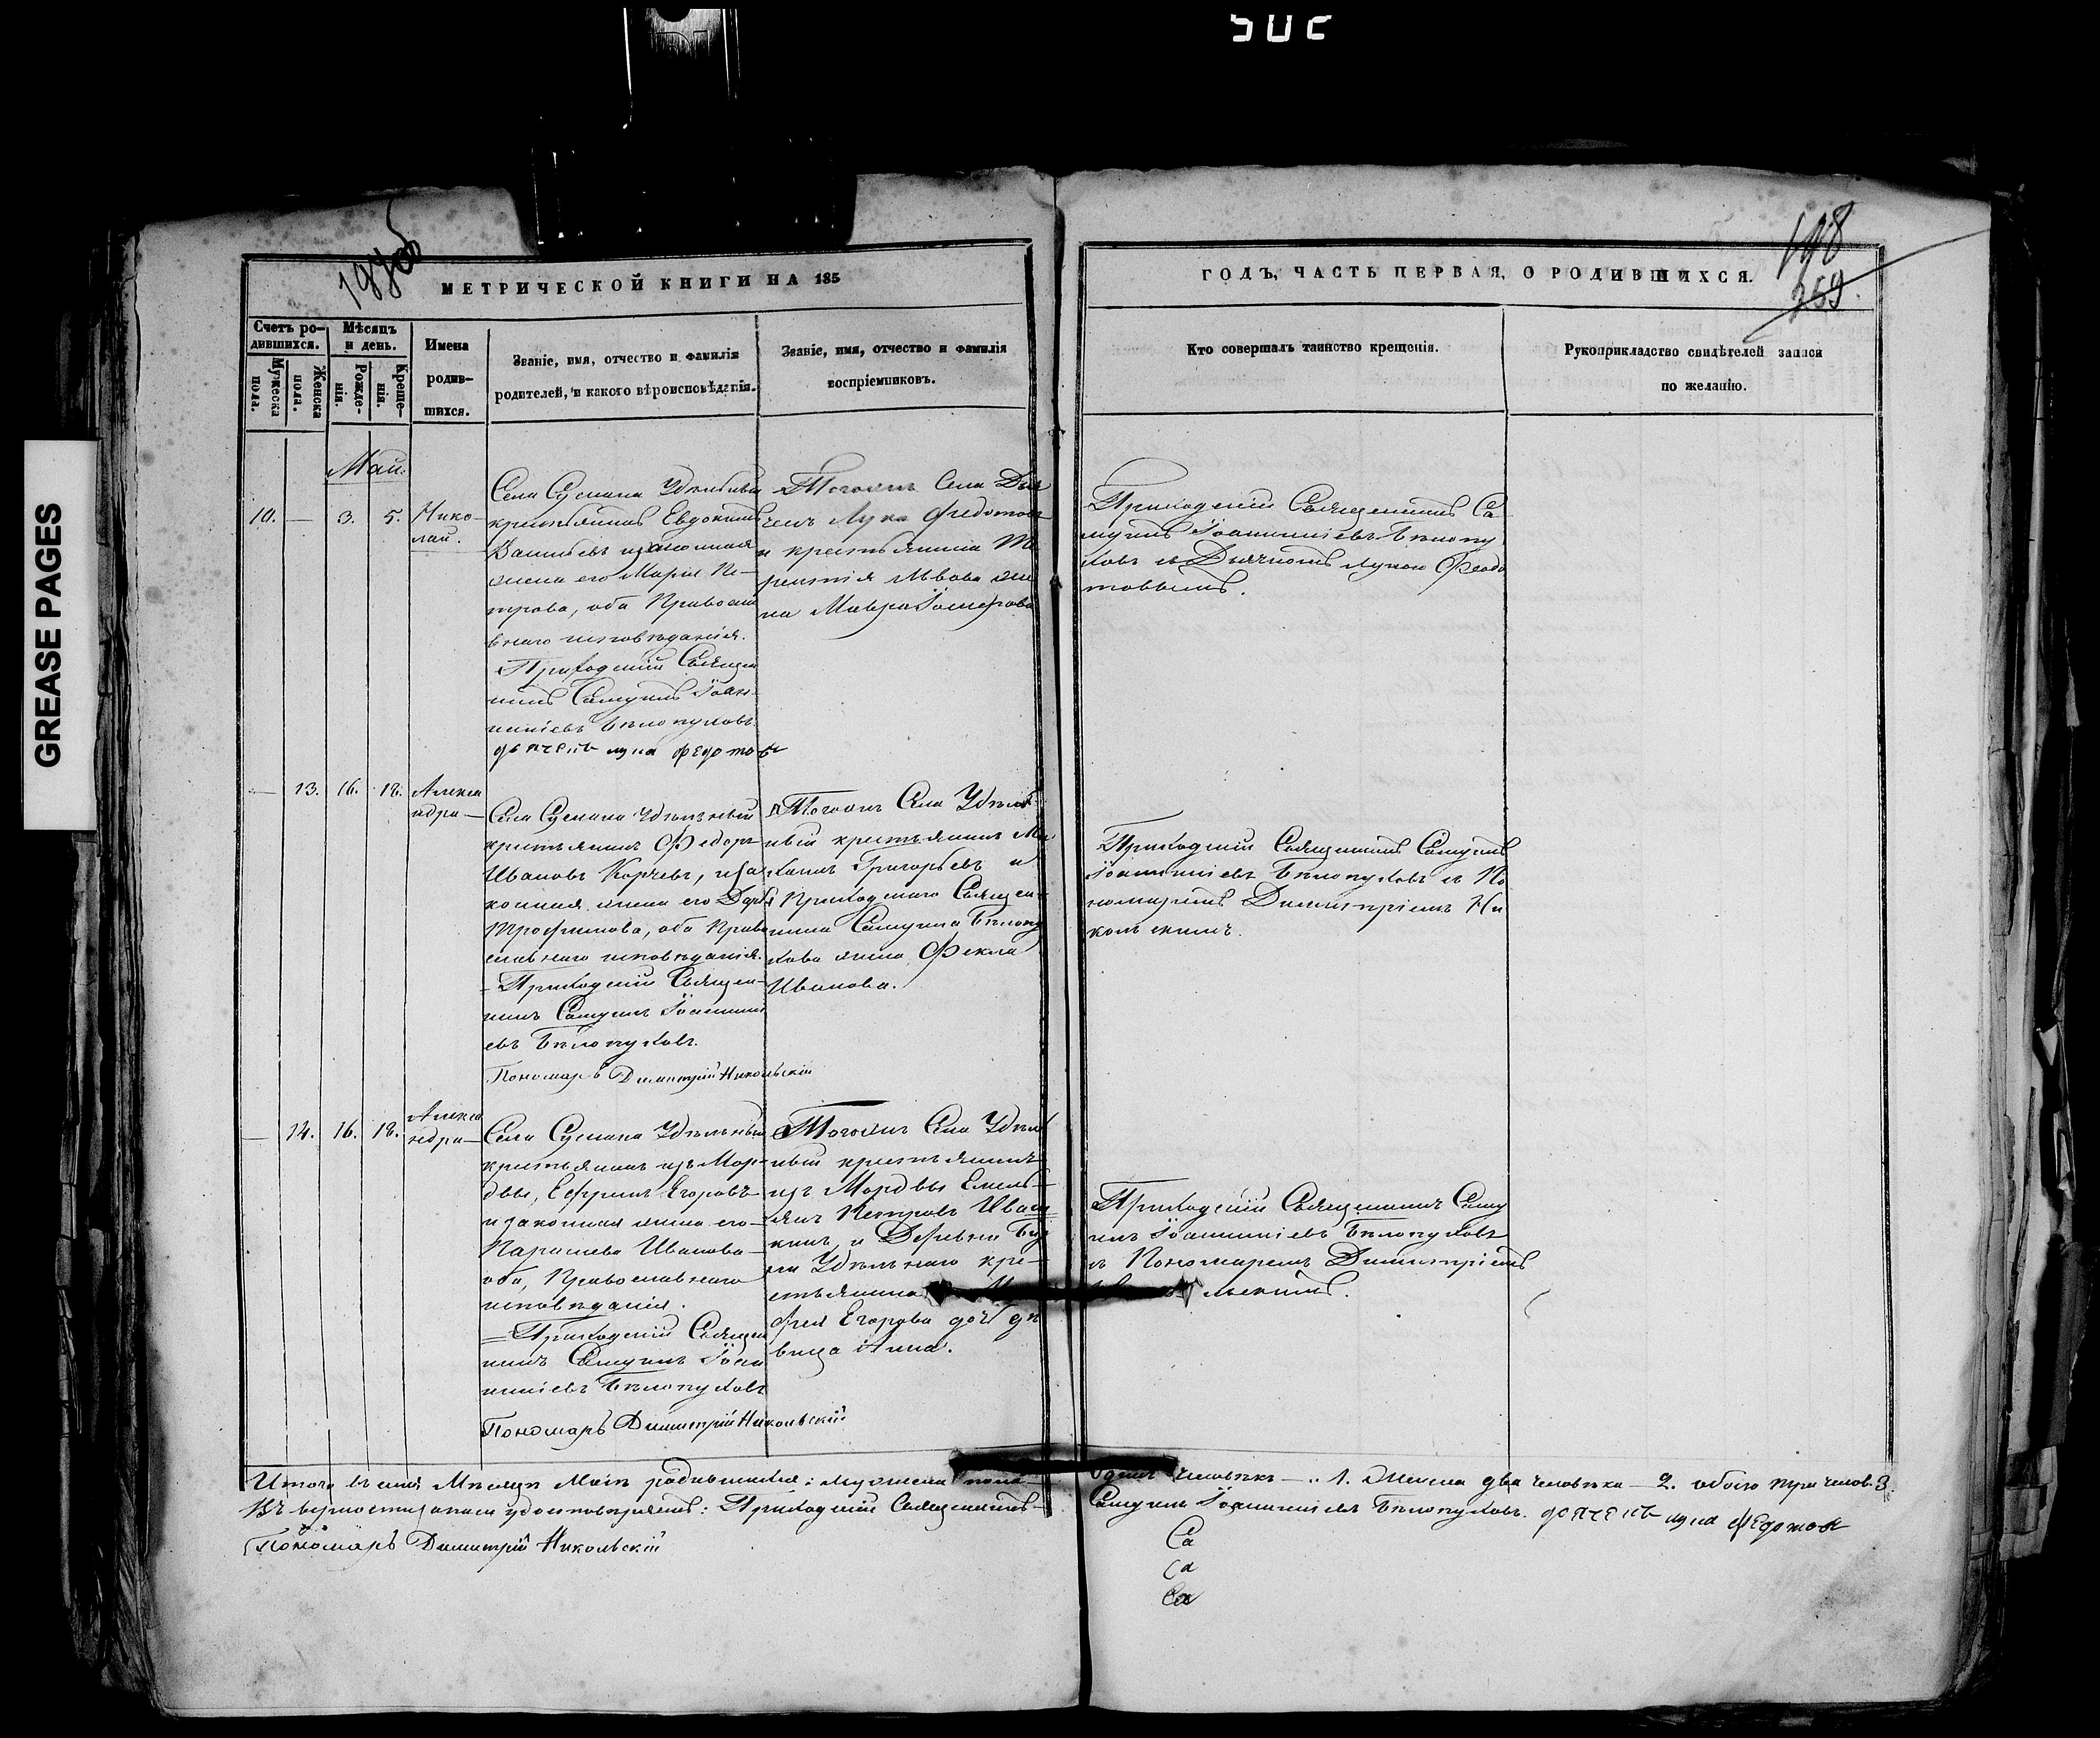 502
GREASE PAGES
198
359.
МЕТРИЧЕСКОЙ КНИГИ НА 185
ГОДЪ, ЧАСТЬ ПЕРВАЯ, О РОДИВШИХСЯ.
Счетъ ро-
дившихся.
Мужеска
пола.
Женска
пола.
Мѣсяцъ
и день.
Рожде-
нія.
Креще-
нія.
Имена
родив-
шихся.
Званіе, имя, отчество и фамилія
родителей, и какого вѣроисповѣданія.
Званіе, имя, отчество и фамилія
воспріемниковъ.
Кто совершалъ таинство крещенія.
Рукоприкладство свидѣтелей записи
по желанію.
Май.
10. — 3. 5. Нико-
лай.
Села Сускана Удѣльный
крестьянинъ Евдокимъ
Васильевъ и законная
жена его Марія Пе-
трова, оба Православ
внаго исповѣданія.
Приходскій Священ
никъ Самуилъ Іоан-
никіевъ Бѣлопуховъ
дьячекъ лука федотовъ
Тогожъ Села Дья
чекъ Лука Федотовъ
и крестьянина Те
рентія Львова же
на Мавра Іосифова
Приходскій Священникъ Са
муилъ Іоанникіевъ Бѣлопу
ховъ съ Дьячкомъ Лукою Федо
товымъ.
— 13. 16. 18. Алекса
ндра —
Села Сускана Удѣльный
крестьянинъ Федоръ
Ивановъ Корчевъ, и за
конная жена его Дарья
Трофимова, оба Право
славнаго исповѣданія.
Приходскій Священ-
никъ Самуилъ Іоанникі
евъ Бѣлопуховъ.
Пономарь Димитрій Никольскій
Тогожъ Села Удѣль
ный крестьянинъ Ма
Григорьевъ и
Приходскаго Священ-
ника Самуила Бѣлопу
хова жена Фекла
Иванова.
Приходскій Священникъ Самуилъ
Іоанникіевъ Бѣлопуховъ съ По
номаремъ Димитріемъ Ни
кольскимъ.
— 14. 16. 18. Алекса
ндра —
Села Сускана Удѣльный
крестьянинъ изъ Мор-
двы, Ефремъ Егоровъ
и законная жена его
Параскева Иванова
оба, Православнаго
исповѣданія.
Приходскій Священ
никъ Самуилъ Іоан
никіевъ Бѣлопуховъ
Пономарь Димитрій Никольскій
Тогожъ Села Удѣль
ный крестьянинъ
изъ Мордвы Емель-
янъ Петровъ Иваш
кинъ, и Деревни
Удѣльнаго кре-
стьянина
Егорова дочь дѣ
вица Анна.
Приходскій Священникъ Саму
илъ Іоанникіевъ Бѣлопуховъ
съ Пономаремъ Димитріемъ
льскимъ.
Итого въ семъ Мѣсяцѣ Маіѣ родившихся: мужеска пола
одинъ человѣкъ — 1. Женска два человѣка — 2. обоего три челов. 3.
Въ верности записи удостовѣряемъ: Приходскій Священникъ
Самуилъ Іоанникіевъ Бѣлопуховъ. дьячекъ лука федотовъ
Пономарь Димитрій Никольскій
Са
Са
Са